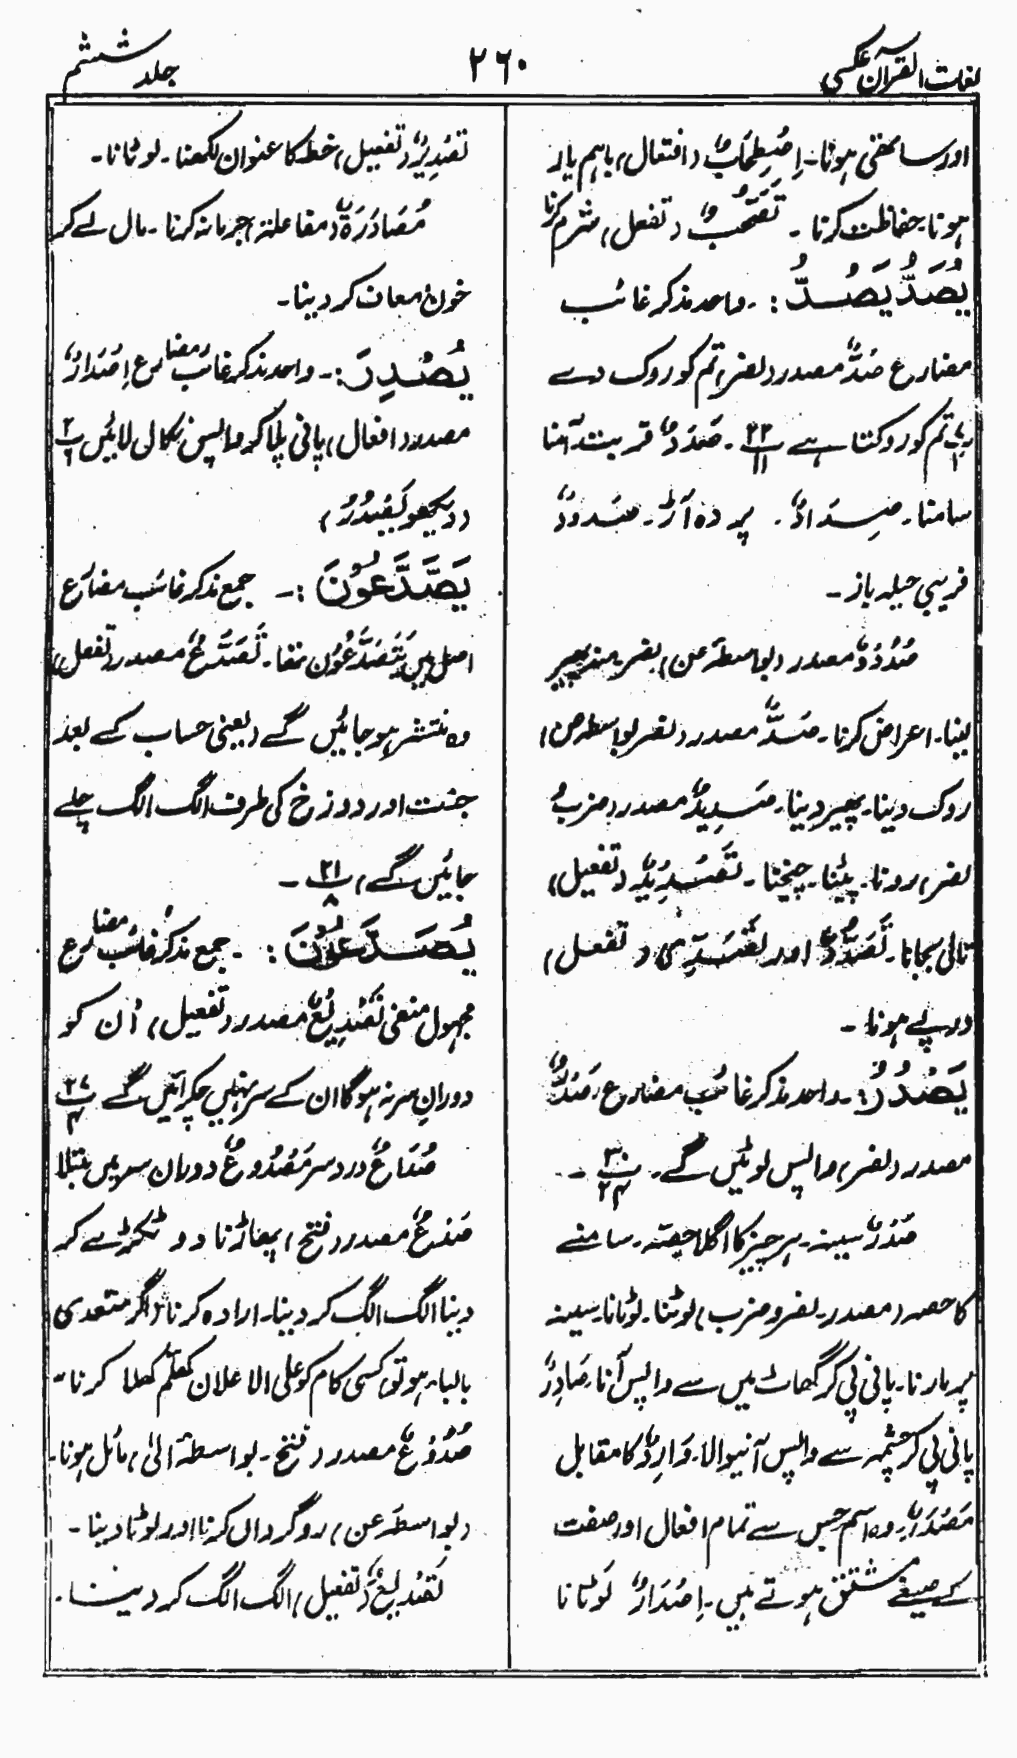 لغات القرآن عکسی
۲۶۰
جلد ششم
اور ساتھی ہونا۔ اِصْطِحَابٌ (افتعال) باہم یار
ہونا۔ حفاظت کرنا ۔ تَصَحُّبٌ (تفعل) شرم کرنا
یُصَدُّ یَصُدُّ :۔ واحد مذکر غائب
مضارع صَدٌّ مصدر (نصر) تم کو روک دے
تم کو روکتا ہے ۲۲/۱۱ ۔ صَدَدٌ قریب آمنا
سامنا۔ صِدَادٌ ۔ پردہ آڑ۔ صَدُودٌ
فریبی حیلہ باز ۔
صُدُوْدٌ مصدر (بواسطہ عن) بضر منہ پھیر
لینا۔ اعراض کرنا ۔ صَدٌّ مصدر (نصر بواسطہ عن)
روک دینا۔ پھیر دینا۔ صَدِیْدٌ مصدر (ضرب و
نصر) رونا۔ پیٹنا۔ چیخنا ۔ تَصْدِیْدٌ (تفعیل)
تالی بجانا ۔ تَصَدُّدٌ اور تَصَدِّی (تفعل)
درپے ہونا ۔
یَصْدُرُ :۔ واحد مذکر غائب مضارع، صَدْرٌ
مصدر (نصر) واپس لوٹیں گے ۔ ۳۰/۲۴ ۔
صَدْرٌ سینہ ۔ ہر چیز کا اگلا حصّہ ۔ سامنے
کا حصہ (مصدر ۔ نصر و ضرب) لوٹنا۔ لوٹانا۔ سینہ
پر مارنا۔ پانی پی کر گھاٹ میں سے واپس آنا۔ صَادِرٌ
پانی پی کر چشمہ سے واپس آنیوالا۔ وَارِدٌ کا مقابل
مَصْدَرٌ ۔ وہ اسم جس سے تمام افعال اور صفت
کے صیغے مشتق ہوتے ہیں ۔ اِصْدَارٌ لوٹانا
تَصْدِیْرٌ (تفعیل) خط کا عنوان لکھنا ۔ لوٹانا ۔
مُصَادَرَةٌ (مفاعلۃ) جرمانہ کرنا ۔ مال لے کر
خون معاف کر دینا ۔
یُصْدِرَ :۔ واحد مذکر غائب مضارع اِصْدَارٌ
مصدر (افعال) پانی پلا کر واپس نکال لائیں
(دیکھو یَصْدُرُ)
یَصَّدَّعُوْنَ :۔ جمع مذکر غائب مضارع
اصل میں یَتَصَدَّعُوْنَ تھا۔ تَصَدُّعٌ مصدر (تفعل)
وہ منتشر ہو جائیں گے (یعنی حساب کے بعد
جنت اور دوزخ کی طرف الگ الگ چلے
جائیں گے) ۲۱/۸ ۔
یُصَدَّعُوْنَ :۔ جمع مذکر غائب مضارع
مجہول منفی تَصْدِیْعٌ مصدر (تفعیل) اُن کو
دوران سر نہ ہوگا ان کے سر نہیں چکرائیں گے
صُدَاعٌ درد سر مَصْدُوعٌ دوران سر میں مبتلا
صَدْعٌ مصدر (فتح) پھاڑنا دو ٹکڑے کر
دینا الگ الگ کر دینا۔ ارادہ کرنا (اگر متعدی
بالباء ہو تو) کسی کام کو علی الاعلان کھلم کھلا کرنا ۔
صُدُوْعٌ مصدر (فتح ۔ بواسطہ الیٰ) مائل ہونا۔
(بواسطہ عن) روگرداں کرنا اور لوٹا دینا ۔
تَصْدِیْعٌ (تفعیل) الگ الگ کر دینا ۔